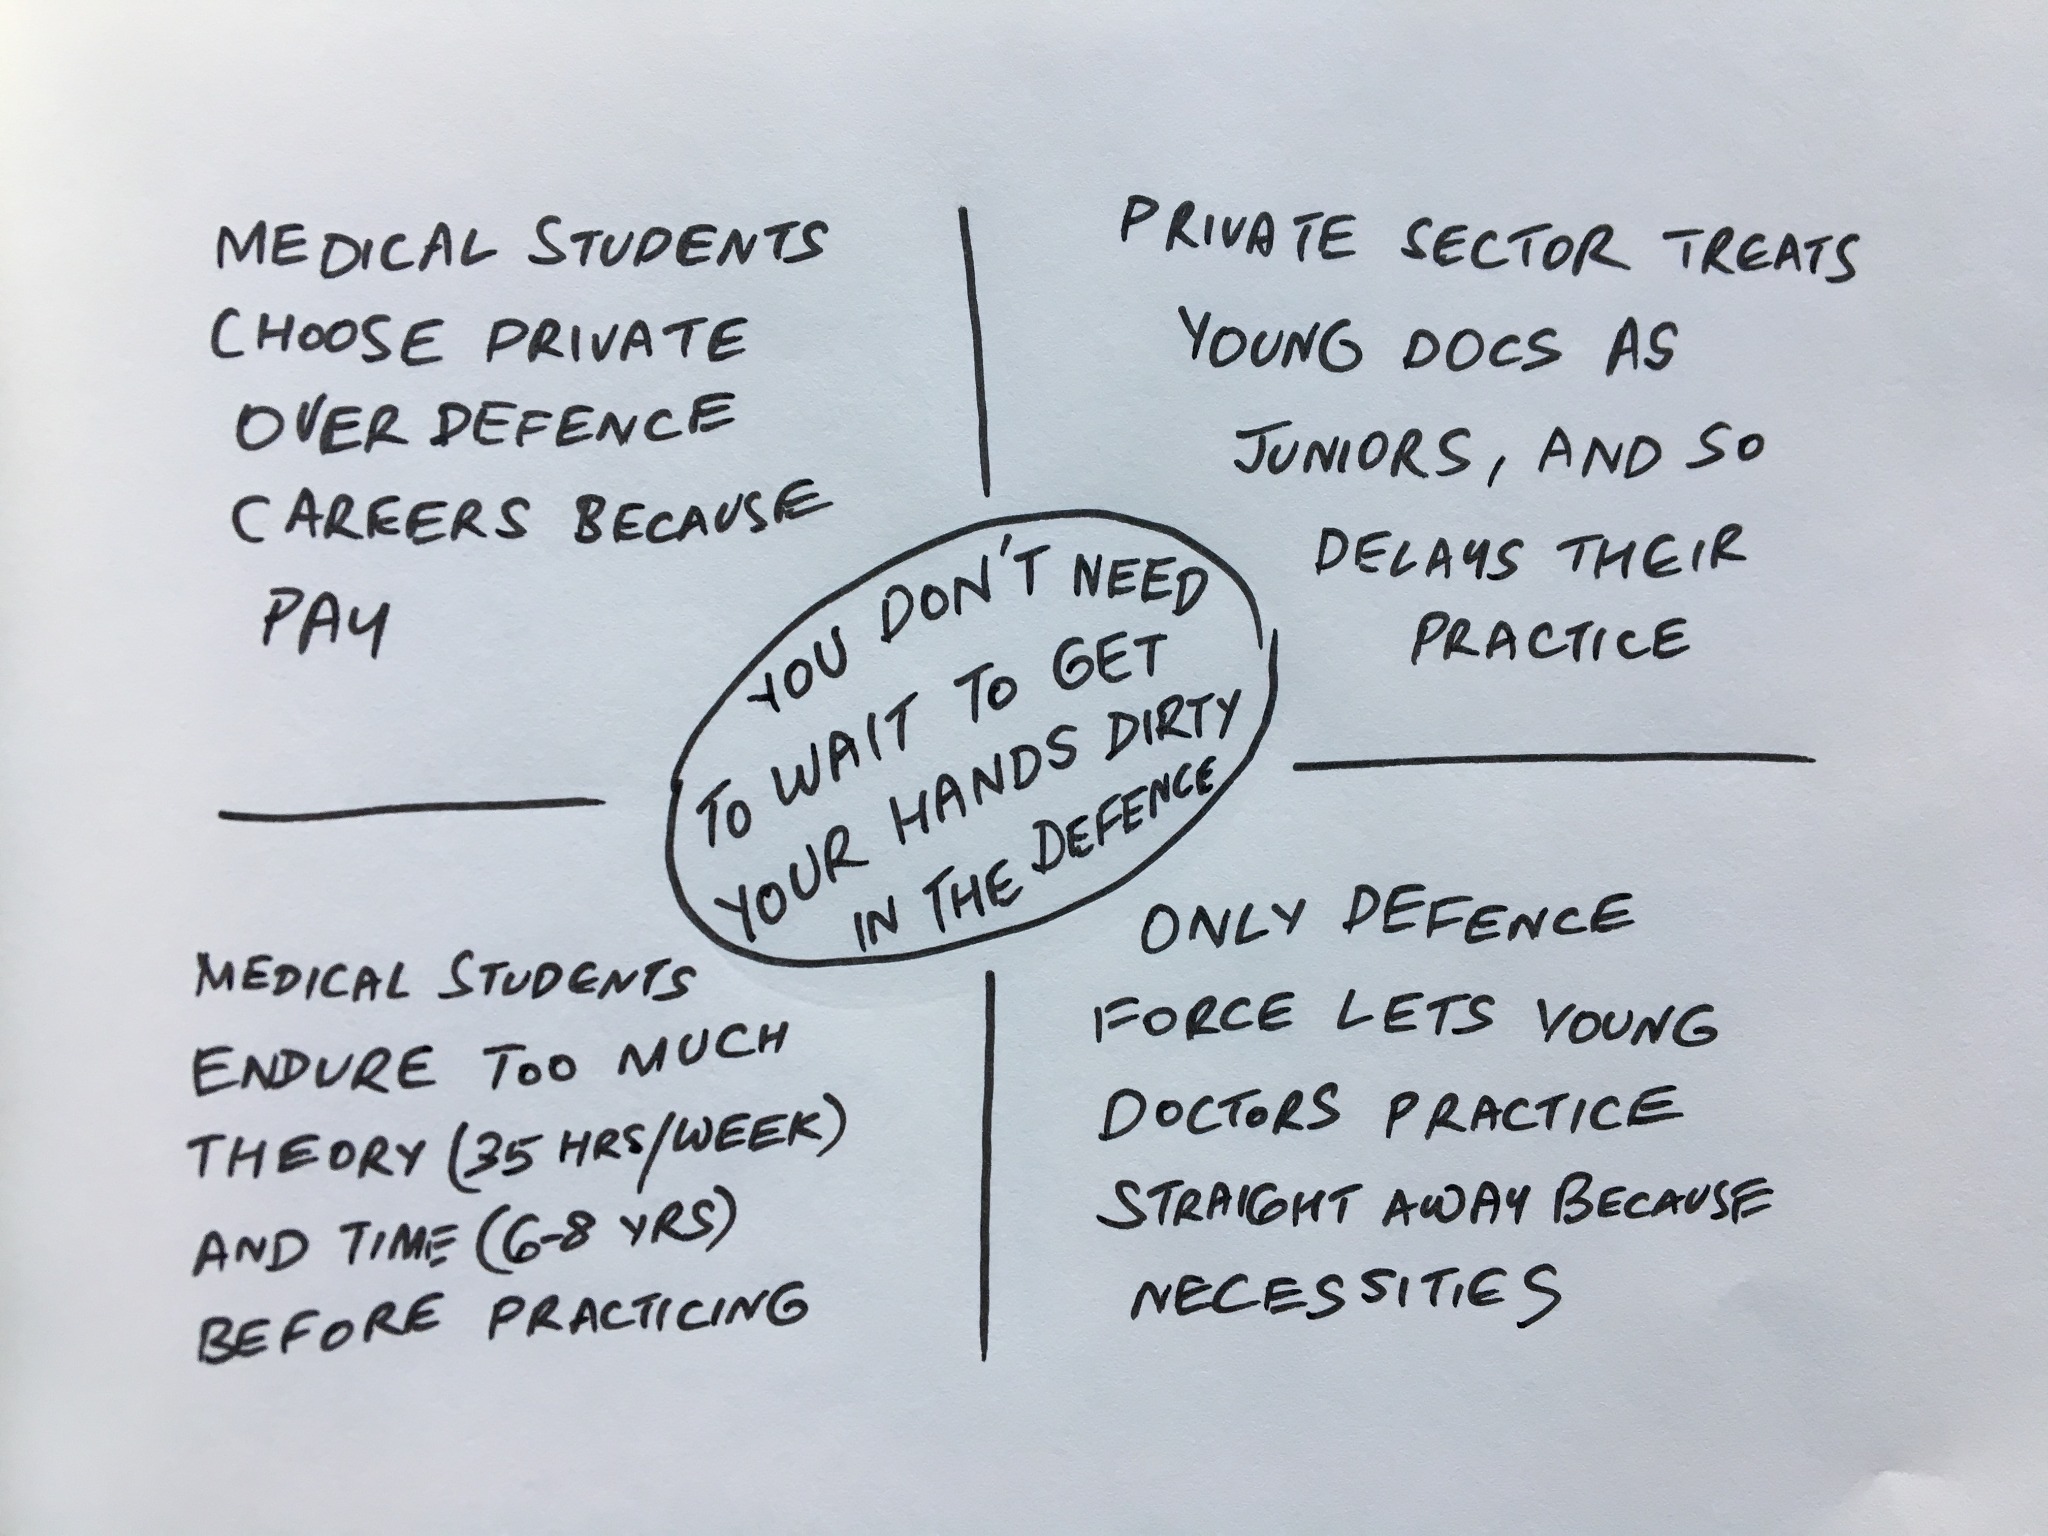 MEDICAL STUDENTS
CHOOSE PRIVATE
OVER DEFENCE
CAREERS BECAUSE
PAY
PRIVATE SECTOR TREATS
YOUNG DOCS AS
JUNIORS, AND SO
DELAYS THEIR
PRACTICE
YOU DON'T NEED
TO WAIT TO GET
YOUR HANDS DIRTY
IN THE DEFENCE
MEDICAL STUDENTS
ENDURE TOO MUCH
THEORY (35 HRS/WEEK)
AND TIME (6-8 YRS)
BEFORE PRACTICING
ONLY DEFENCE
FORCE LETS YOUNG
DOCTORS PRACTICE
STRAIGHT AWAY BECAUSE
NECESSITIES